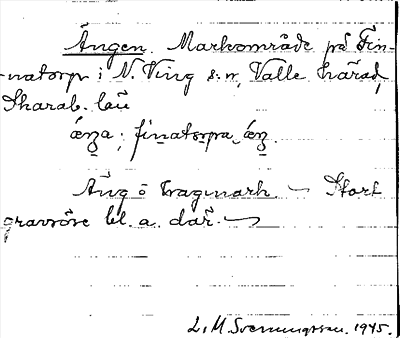 Ängen. Markområde på Fin-
-natorp i N. Ving s:n, Valle härad,
Skarab. län
æŋa; finatorpa æŋ.
Äng o hagmark. – Stort
gravröse bl. a. där. –
L. M. Svenungsson. 1945.